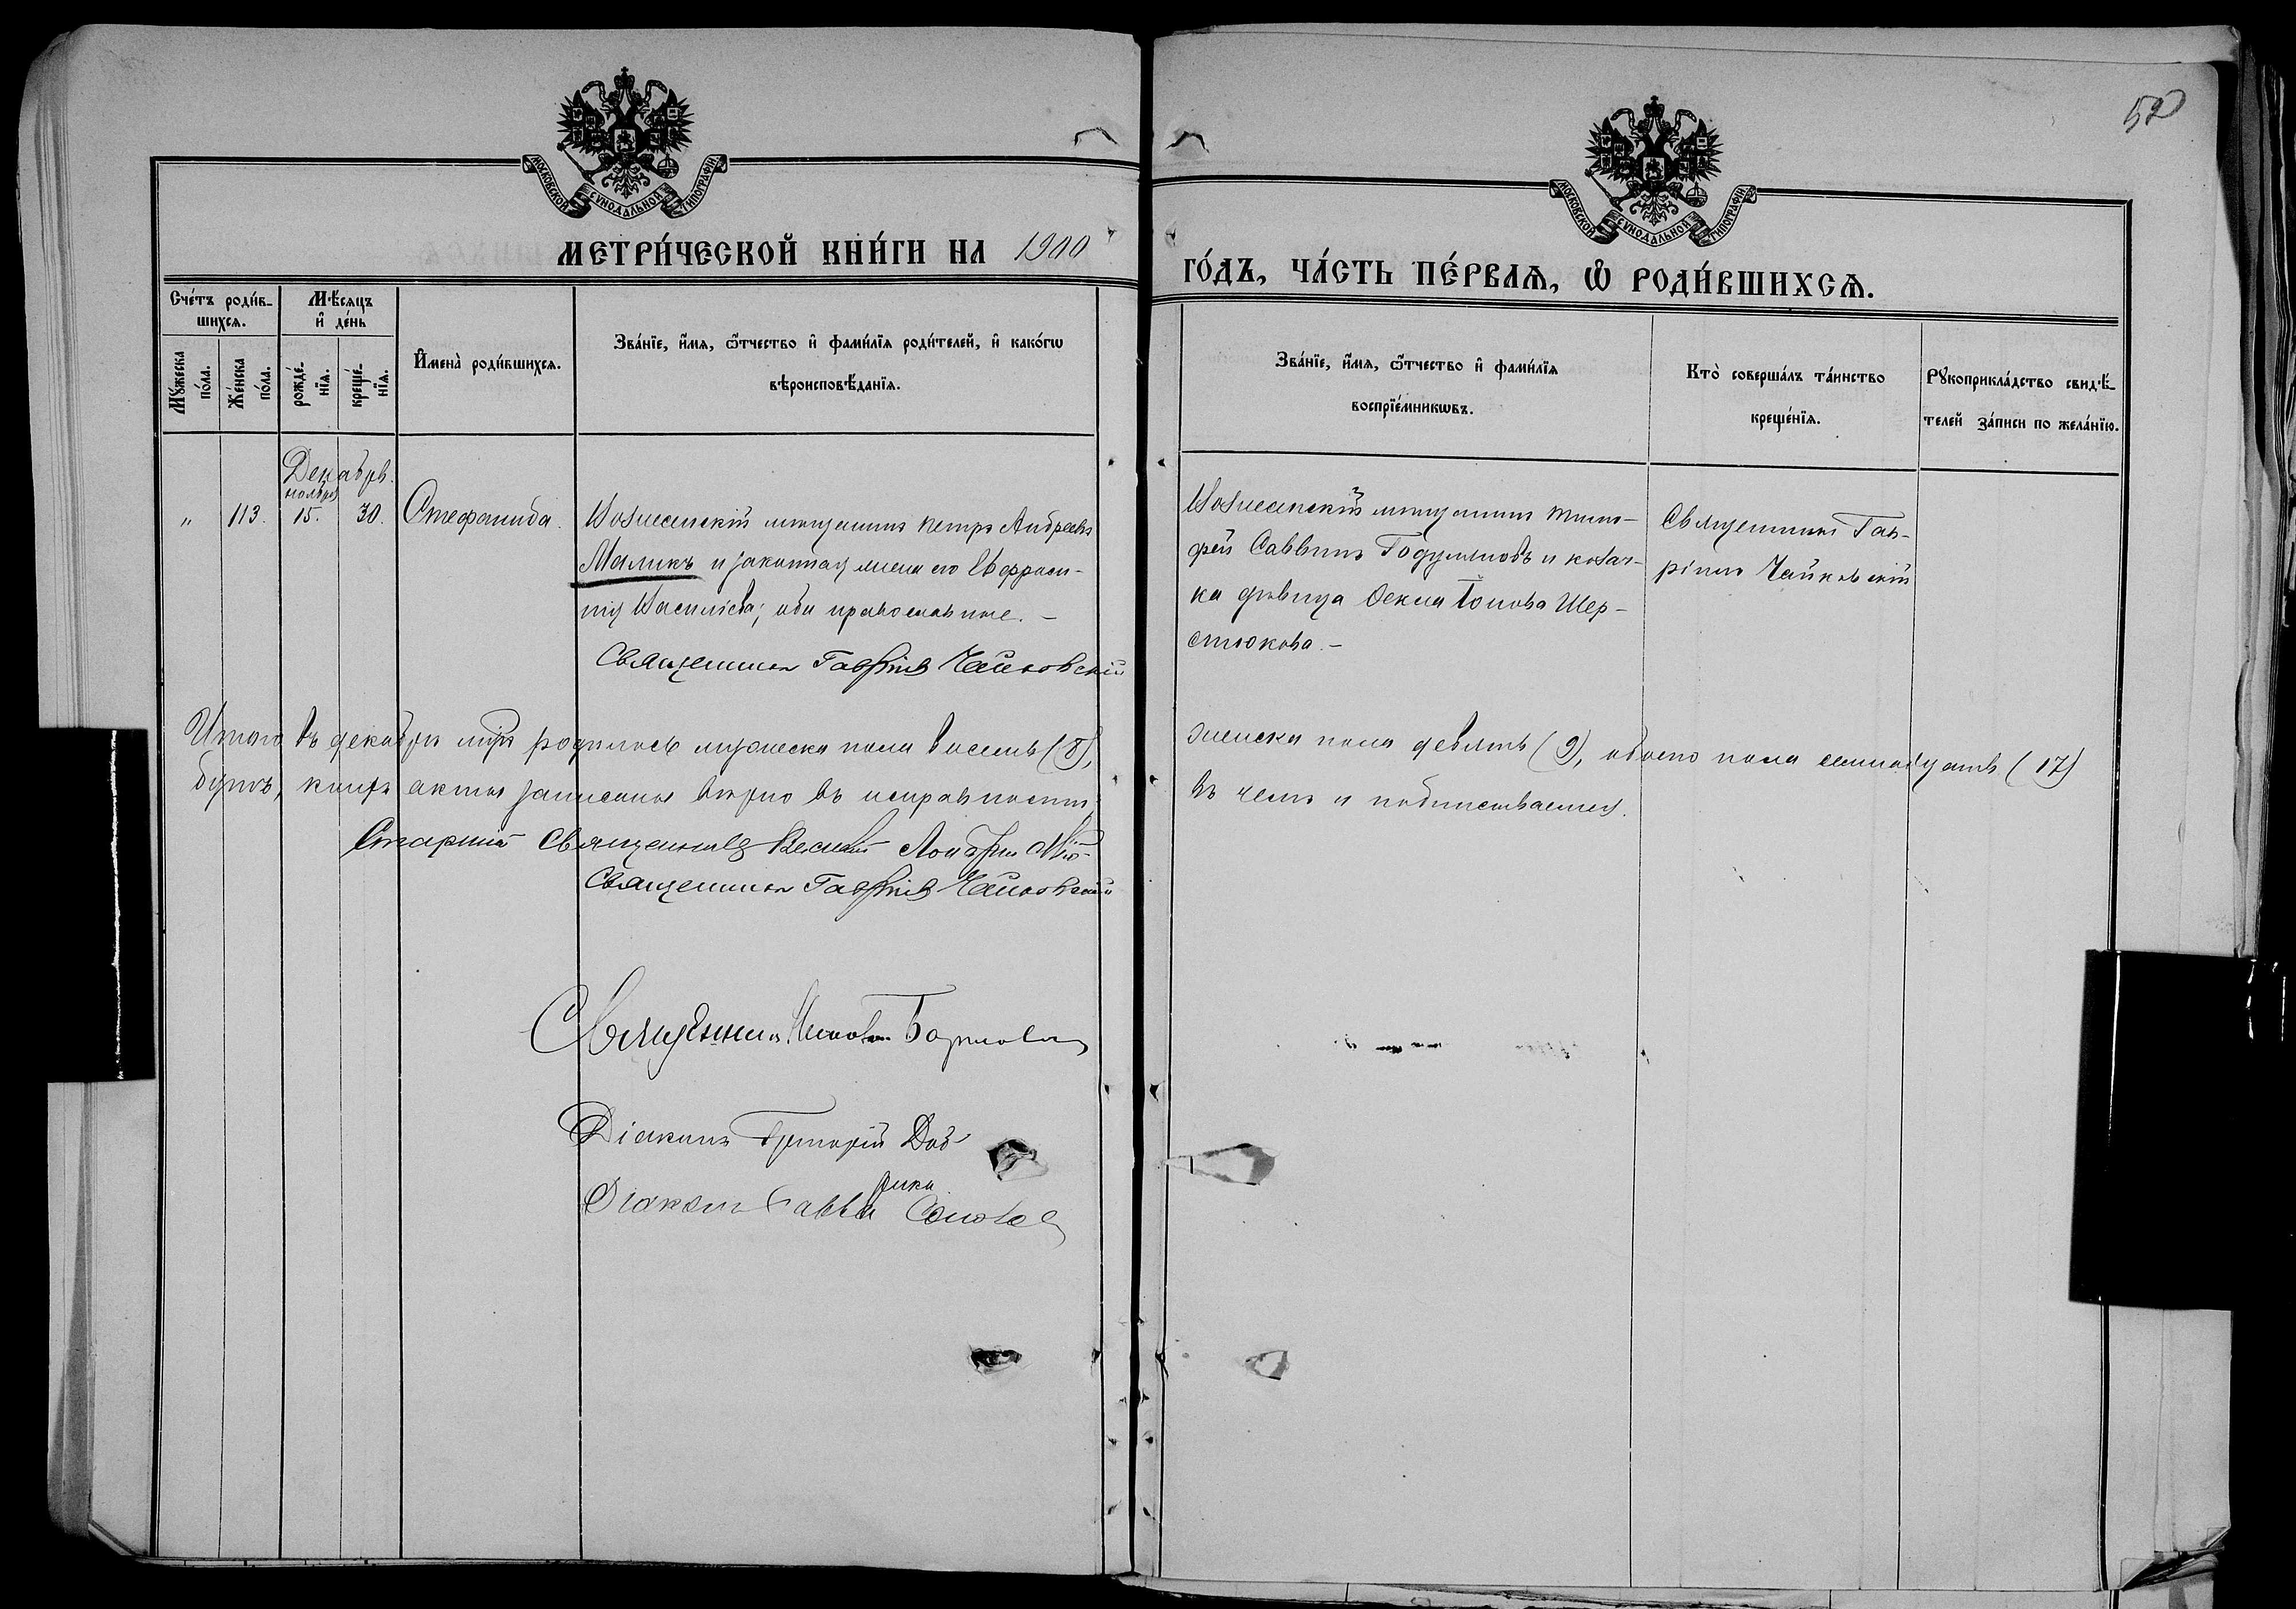 52
МОСКОВСКОЙ СѴНОДАЛЬНОЙ ТИПОГРАФІИ
МОСКОВСКОЙ СѴНОДАЛЬНОЙ ТИПОГРАФІИ
МЕТРИ́ЧЕСКОЙ КНИ́ГИ НА 1900
ГО́ДЪ, ЧА́СТЬ ПЕ́РВАѦ, Ѿ РОДИ́ВШИХСѦ.
Сче́тъ роди́в-
шихсѧ.
Мꙋ́жеска по́ла.
Же́нска по́ла.
Мѣ́сѧцъ
и҆ де́нь
рожде́-
нїѧ.
креще́-
нїѧ.
И҆мена̀ роди́вшихсѧ.
Зва́нїе, и҆́мѧ, ѻ҆́тчество и҆ фами́лїѧ роди́телей, и҆ како́гѡ
вѣроисповѣ́данїѧ.
Зва́нїе, и҆́мѧ, ѻ҆́тчество и҆ фами́лїѧ
воспрїе́мникѡвъ.
Кто̀ соверша́лъ та́инство
креще́нїѧ.
Рꙋкоприкла́дство свидѣ́-
телей за́писи по жела́нїю.
Декабрь.
ноября
„ 113. 15. 30. Стефанида.
Вознесенскій мѣщанинъ Петръ Андреевъ
Маликъ и законная жена его Евфроси-
нія Василіева; оба православные. –
Священникъ Гавріилъ Чайковскій
Вознесенскій мѣщанинъ Тимо-
фей Саввинъ Годуляновъ и козач-
ка дѣвица Ѳекла Іонова Шер-
стюкова. –
Священникъ Гав-
ріилъ Чайковскій
Итого въ декабрѣ мцѣ родилось мужеска пола восемь (8),
женска пола девять (9), обоего пола семнадцать (17)
актъ записанъ вѣрно въ исправности
въ чемъ и подписываемся.
Старшій Священникъ
Священникъ Гавріилъ Чайковскій
Священникъ
Діаконъ Григорій Доб
рика
Діаконъ Савва